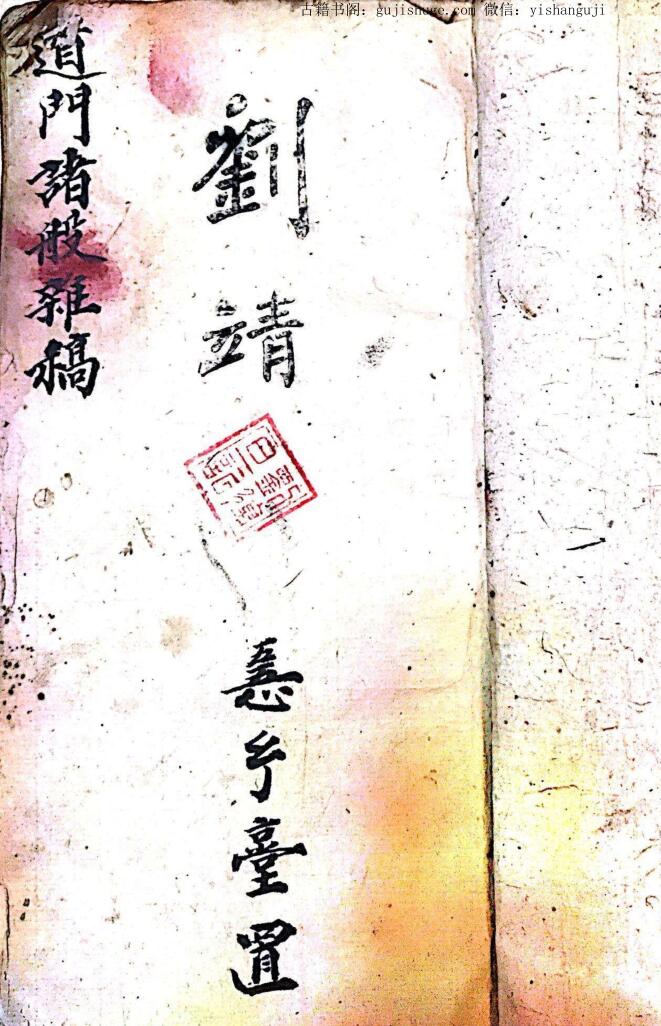 古籍书阁：gujishuge.com 微信：yishanguji
劉靖
臺置
道門諸般雜稿